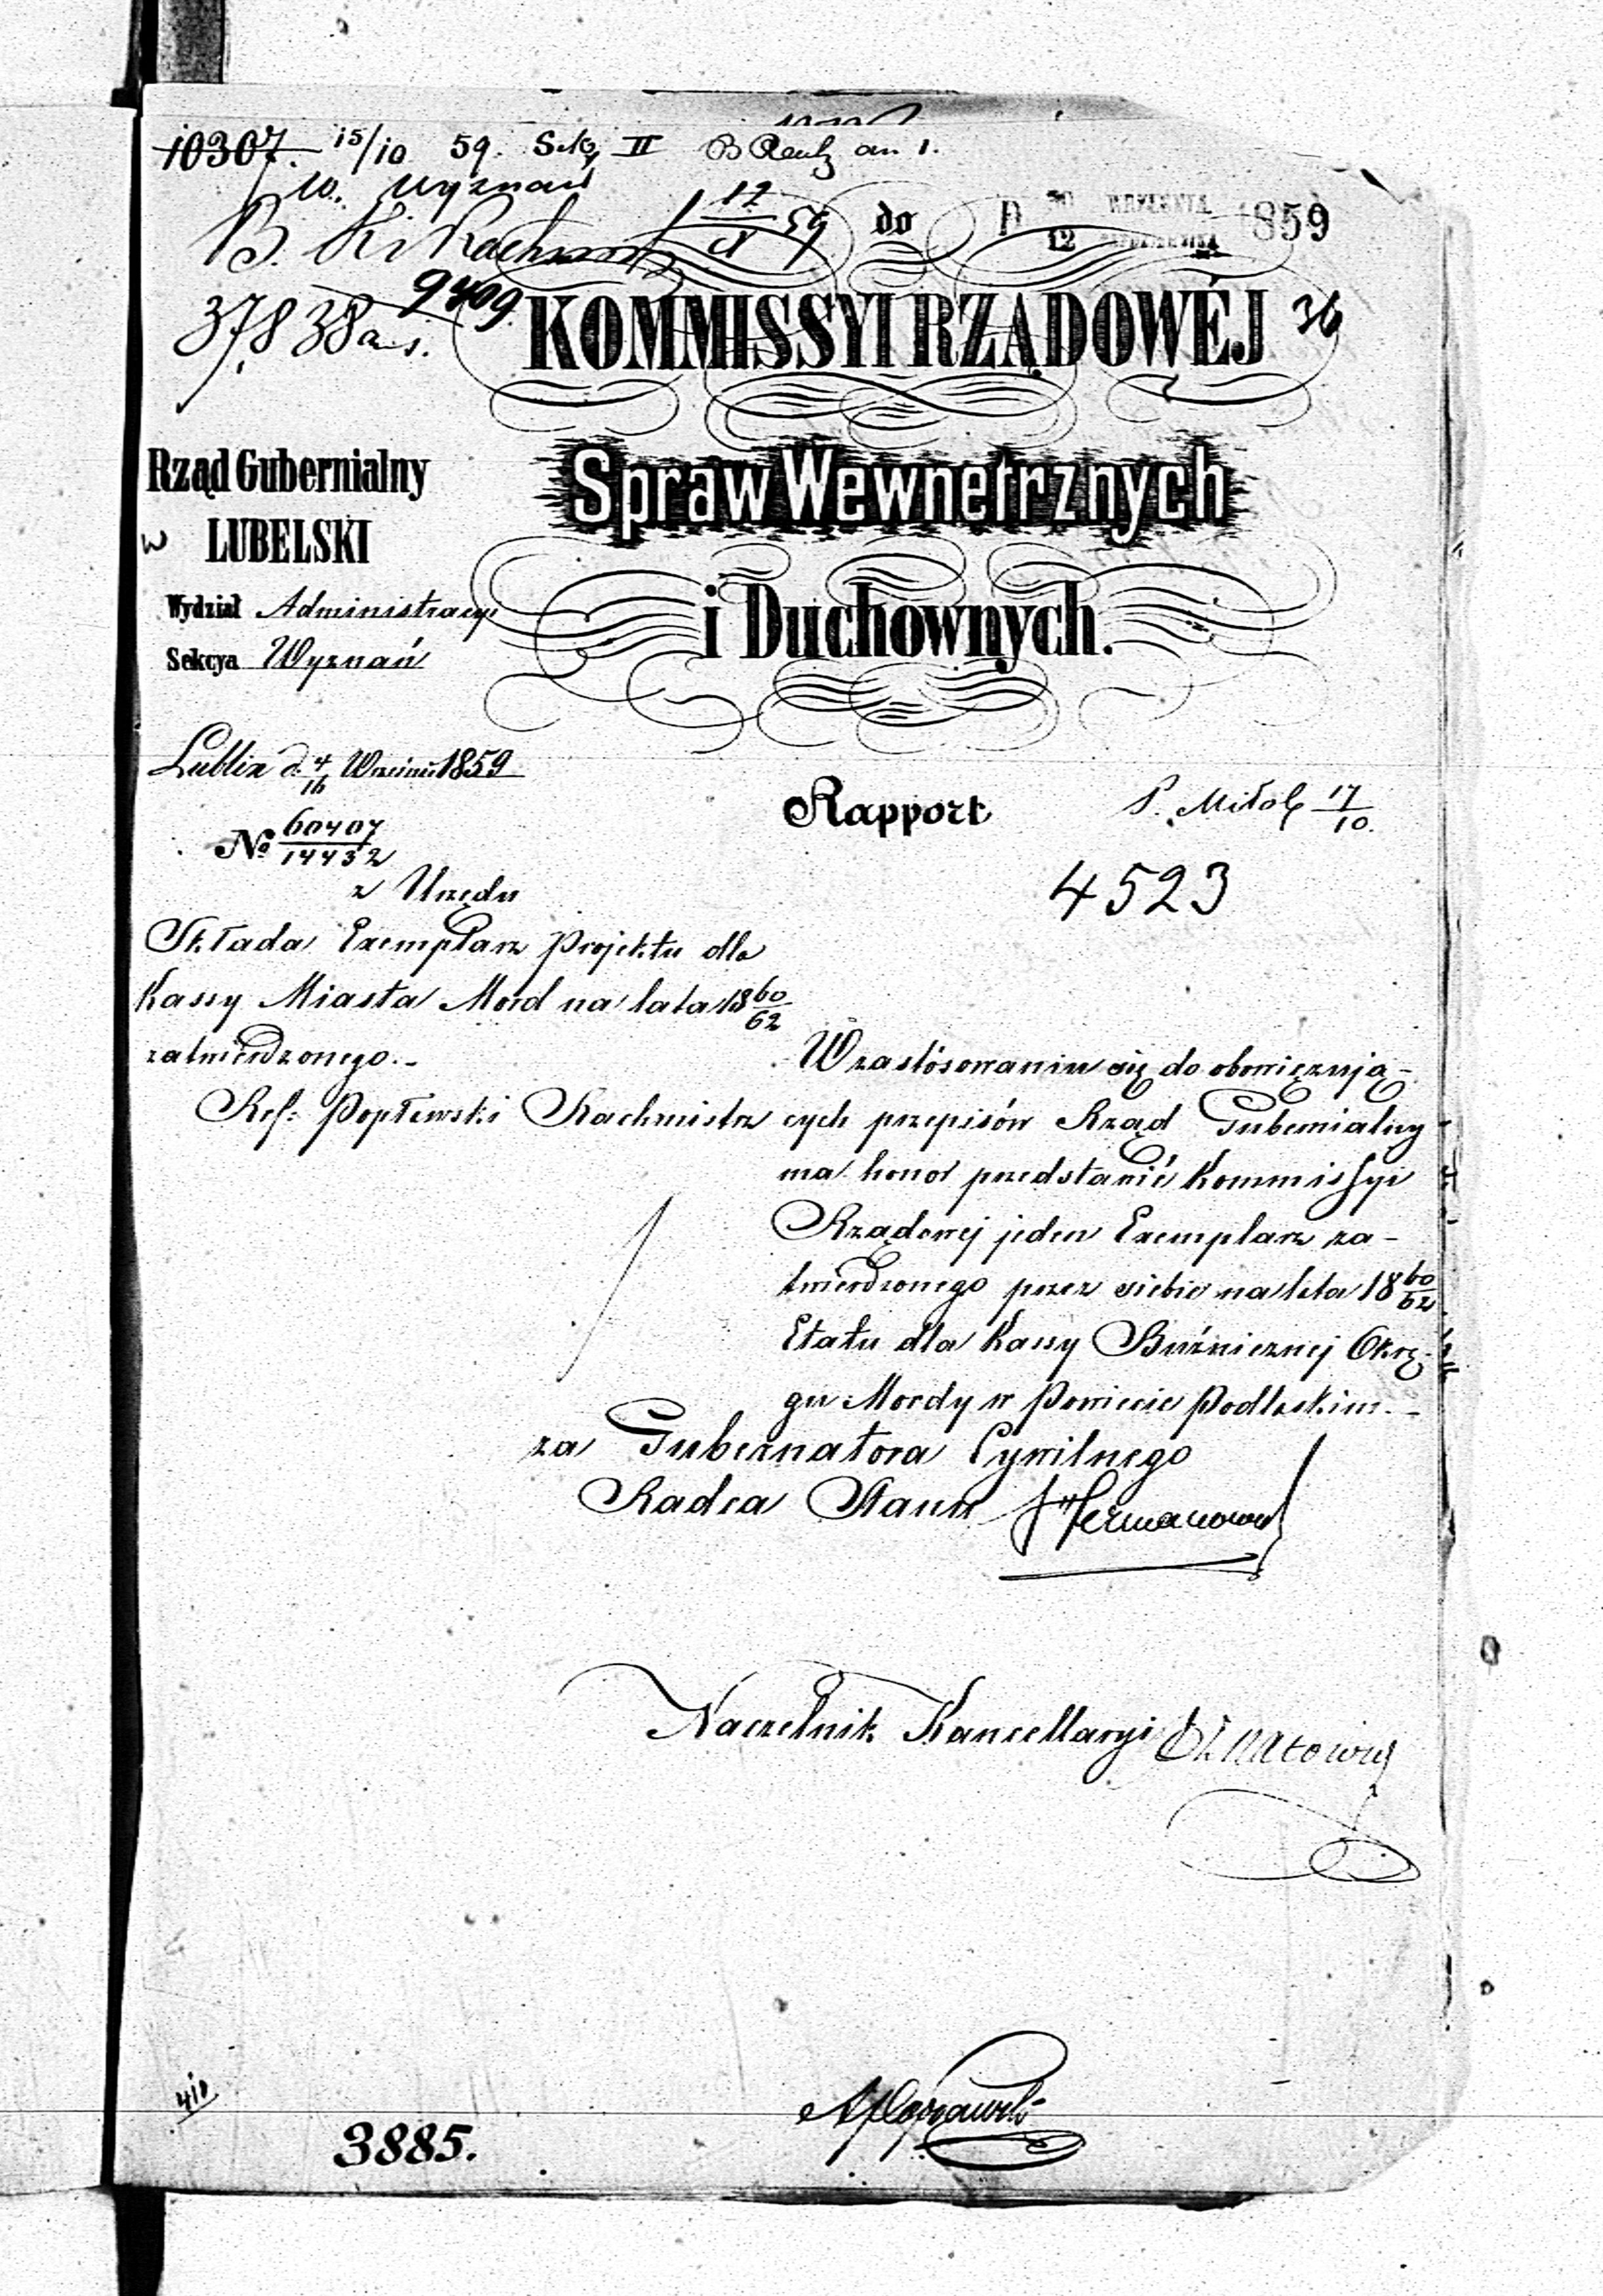 10307. 15/10 59. Sek. II
W. Wyznań
B. Ki Rachun 12/IX 59 do D 30 WRZEŚNIA 12 PAŹDZIERNIKA 1859
9409
37,838 a. 1.
KOMMISSYI RZĄDOWÉJ 36
Spraw Wewnętrznych
i Duchownych.
Rząd Gubernialny
LUBELSKI
Wydział Administracyi
Sekcya Wyznań
Lublin d. 4/16 Września 1859
No 60407/14432
z Urzędu
Rapport
P. Miłob 17/10.
4523
Składa Exemplarz Projektu dla
Kassy Miasta Mord na lata 18 60/62
zatwierdzonego.-
Ref: Popławski Rachmistrz
W zastósowaniu się do obowięzują-
cych przepisów Rząd Gubernialny
ma honor przedstawić Kommissyi
Rządowej jeden Exemplarz za-
twierdzonego przez siebie na lata 18 60/62
Etatu dla Kassy Bużnicznej Okrę-
gu Mordy w Powiecie Podlaskim.-
za Gubernatora Cywilnego
Radca Stanu
Naczelnik Kancellaryi
410
3885.